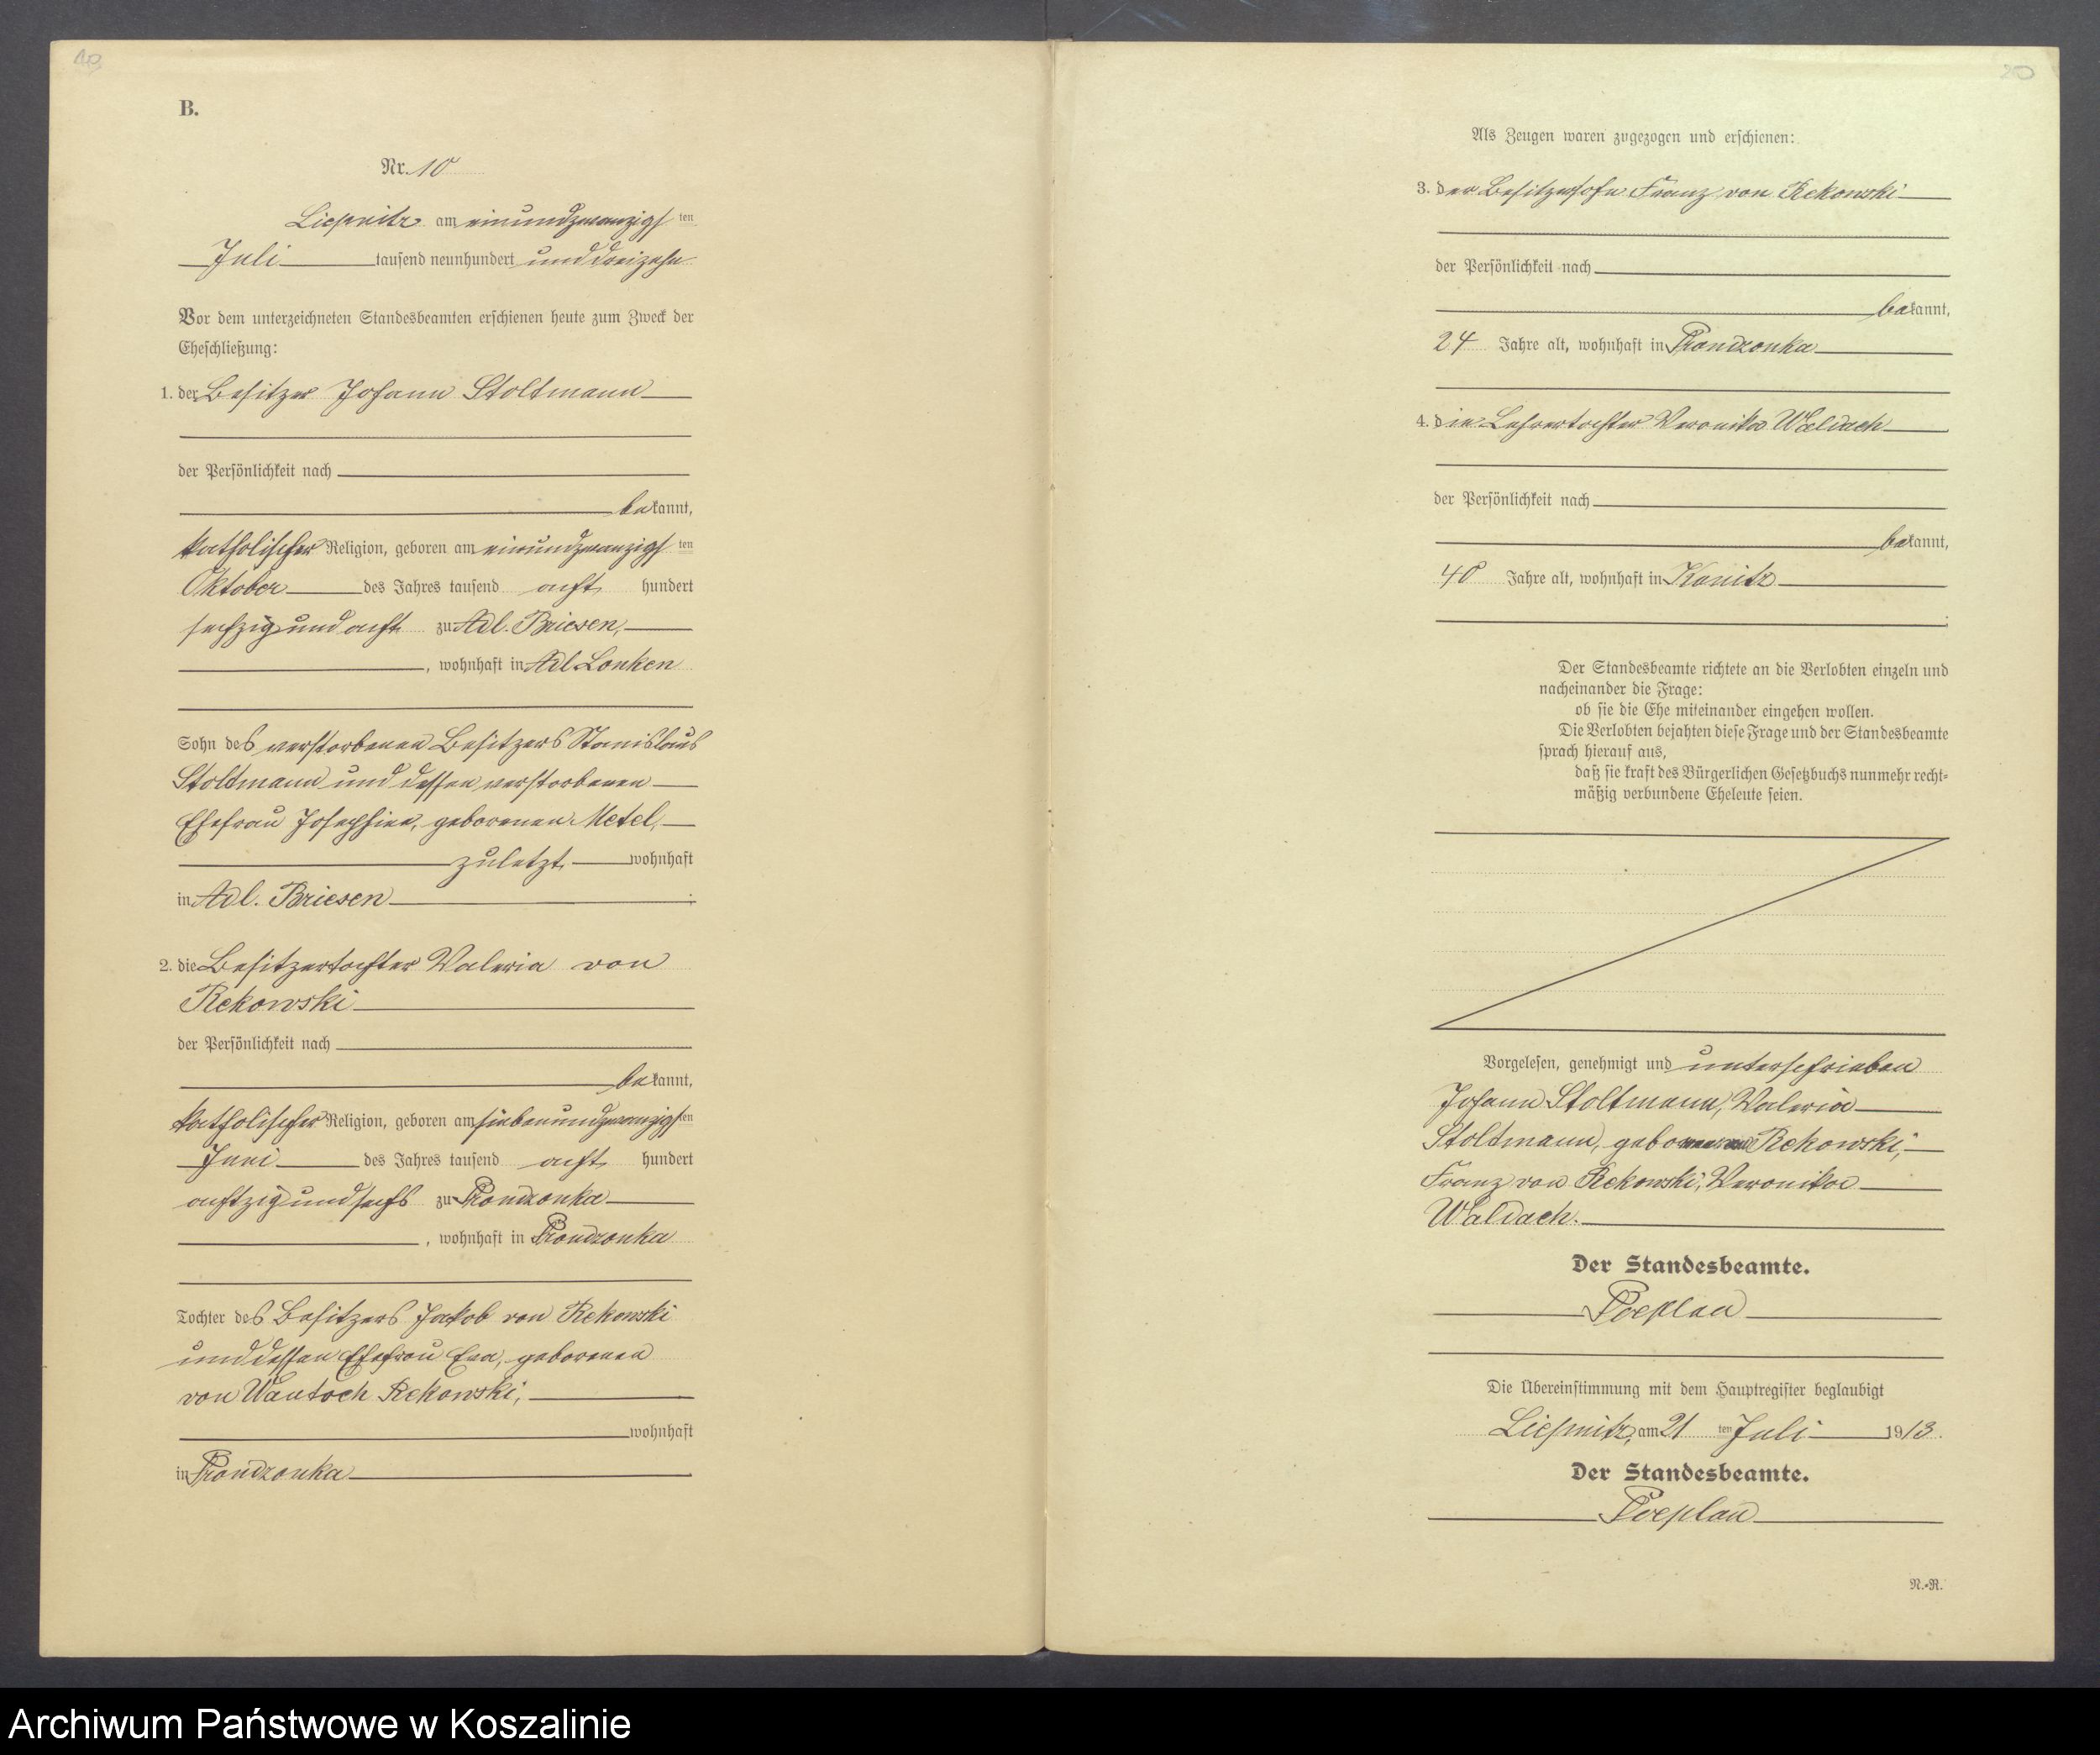 B.
Nr. 10
Liepnitz am einundzwanzigsten
Juli tausend neunhundert und dreizehn
Vor dem unterzeichneten Standesbeamten erschienen heute zum Zweck der
Eheschließung:
1. der Besitzer Johann Stoltmann
der Persönlichkeit nach
bekannt,
katholischer Religion, geboren am einundzwanzigsten
Oktober des Jahres tausend acht hundert
sechzig und acht zu Adl. Briesen,
, wohnhaft in Adl. Lonken
Sohn des verstorbenen Besitzers Stanislaus
Stoltmann und dessen verstorbenen
Ehefrau Josephine, geborenen Metel,
zuletzt wohnhaft
in Adl. Briesen
2. die Besitzertochter Valeria von
Rekowski
der Persönlichkeit nach
bekannt,
katholischer Religion, geboren am siebenundzwanzigsten
Juni des Jahres tausend acht hundert
achtzig und sechs zu Prondzonka
, wohnhaft in Prondzonka
Tochter des Besitzers Jakob von Rekowski
und dessen Ehefrau Eva, geborenen
von Wantoch Rekowski,
wohnhaft
in Prondzonka
20
Als Zeugen waren zugezogen und erschienen:
3. der Besitzersohn Franz von Rekowski
der Persönlichkeit nach
bekannt,
24 Jahre alt, wohnhaft in Prondzonka
4. die Lehrertochter Veronika Waldach
der Persönlichkeit nach
bekannt,
40 Jahre alt, wohnhaft in Konitz
Der Standesbeamte richtete an die Verlobten einzeln und
nacheinander die Frage:
ob sie die Ehe miteinander eingehen wollen.
Die Verlobten bejahten diese Frage und der Standesbeamte
sprach hierauf aus,
daß sie kraft des Bürgerlichen Gesetzbuchs nunmehr recht-
mäßig verbundene Eheleute seien.
Vorgelesen, genehmigt und unterschrieben
Johann Stoltmann, Valeria
Stoltmann, geborene von Rekowski,
Franz von Rekowski, Veronika
Waldach.
Der Standesbeamte.
Poeplau
Die Übereinstimmung mit dem Hauptregister beglaubigt
Liepnitz, am 21 ten Juli 1913.
Der Standesbeamte.
Poeplau
N.-R.
Archiwum Państwowe w Koszalinie